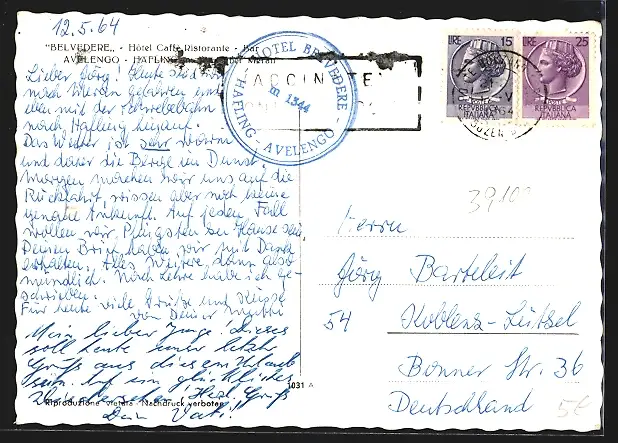 12.5.64
"BELVEDERE, - Hôtel Caffè Ristorante - Bar
AVELENGO - HAFLING über Meran
Lieber Jörg! Heute sind wir
nach Meran gefahren und
eben mit der Schwebebahn
nach Hafling hinauf.
Das Wetter ist sehr warm
und daher die Berge im Dunst.
Morgen machen wir uns auf die
Rückfahrt, wissen aber noch keine
genaue Ankunft. Auf jeden Fall
wollen wir Pfingsten zu Hause sein.
Deinen Brief haben wir mit Dank
erhalten. Alles Weitere dann also
mündlich. Nach Lehre habe ich ge-
schrieben.
Für heute viele Grüße und Küsse
von Deiner Mutti
Mein lieber Junge! dieses
soll heute unser letzter
Gruß aus diesem Urlaub
sein. Auf ein glückliches
Wiedersehen! Herzl. Gruß
Dein Vati!
Riproduzione vietata - Nachdruck verboten
1031 A
HOTEL BELVEDERE
m 1344
HAFLING - AVELENGO
VACCINATE
LIRE 15
REPUBBLICA
ITALIANA
LIRE 25
REPUBBLICA
ITALIANA
39,100
Herrn
Jörg Barteleit
54 Koblenz-Lützel
Bonner Str. 36
Deutschland
5€